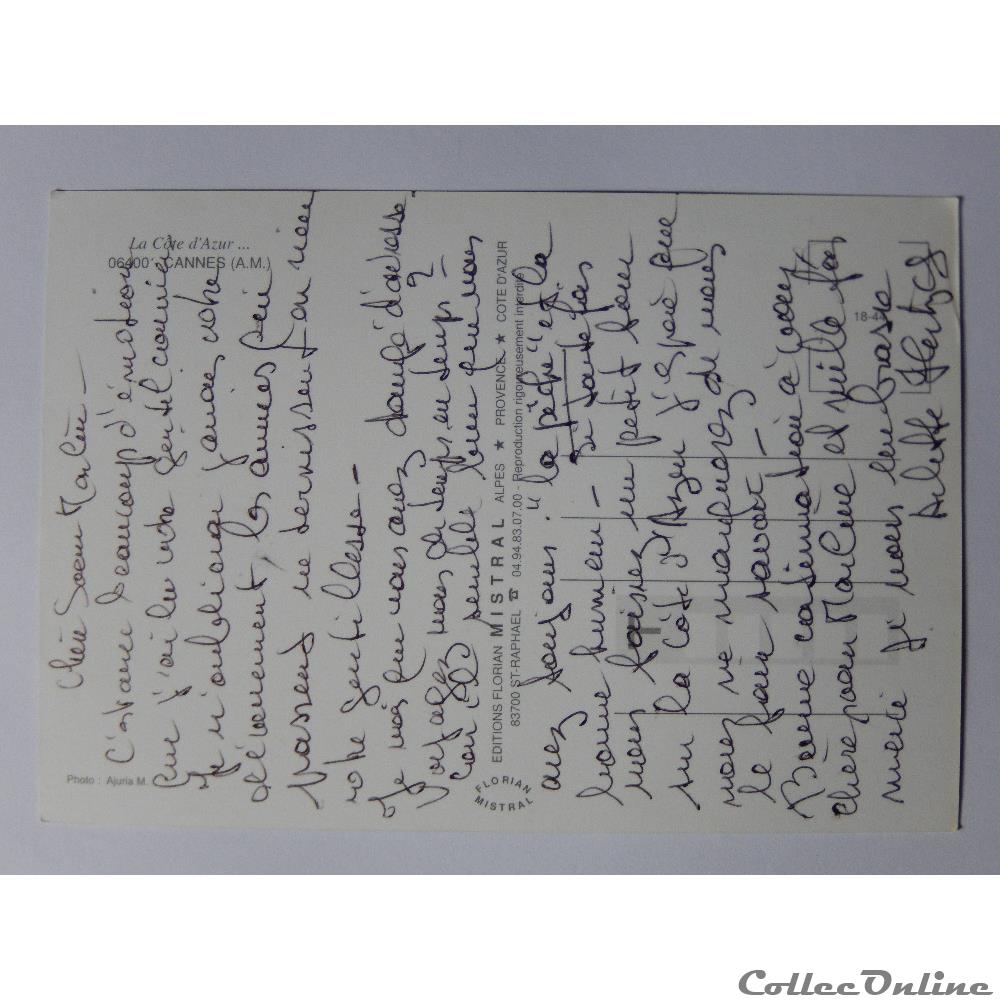 La Côte d'Azur ...
06400 - CANNES (A.M.)
Photo : Ajuria M.
Chère Soeur Marlène -
C'est avec beaucoup d'émotion
que j'ai lu votre gentil courrier
Je n'oublierai jamais votre
dévouement, les années qui
passent ne servissent en rien
votre gentillesse -
Je vois que vous avez changé d'adresse
voyagez vous de temps en temps ?
car il semble bien que vous
EDITIONS FLORIAN MISTRAL ALPES ★ PROVENCE ★ COTE D'AZUR
83700 ST-RAPHAEL ☎ 04.94.83.07.00 - Reproduction rigoureusement interdite
FLORIAN MISTRAL
18-44
avez toujours "la pêche" et la
bonne humeur -
Si toutefois
vous faisiez un petit tour
sur la Côte d'Azur j'espère que
vous ne manquerez de nous
le faire savoir -
Bonne continuation à vous
chère soeur Marlène et mille fois
merci
Je vous embrasse
Arlette